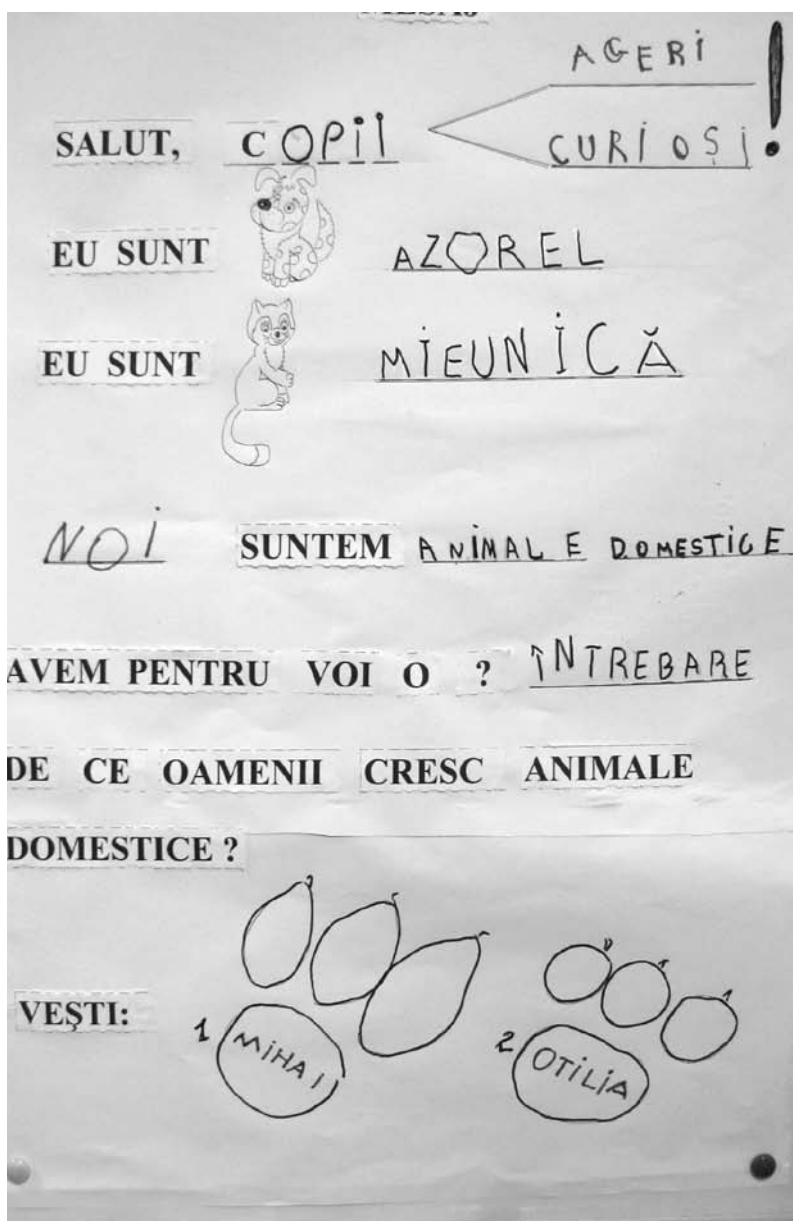 MESAJ
AGERI
SALUT, COPII CURIOȘI !
EU SUNT AZOREL
EU SUNT MIEUNICĂ
NOI SUNTEM ANIMALE DOMESTICE
AVEM PENTRU VOI O ? ÎNTREBARE
DE CE OAMENII CRESC ANIMALE
DOMESTICE ?
VEȘTI:
1 MIHAI 2 OTILIA